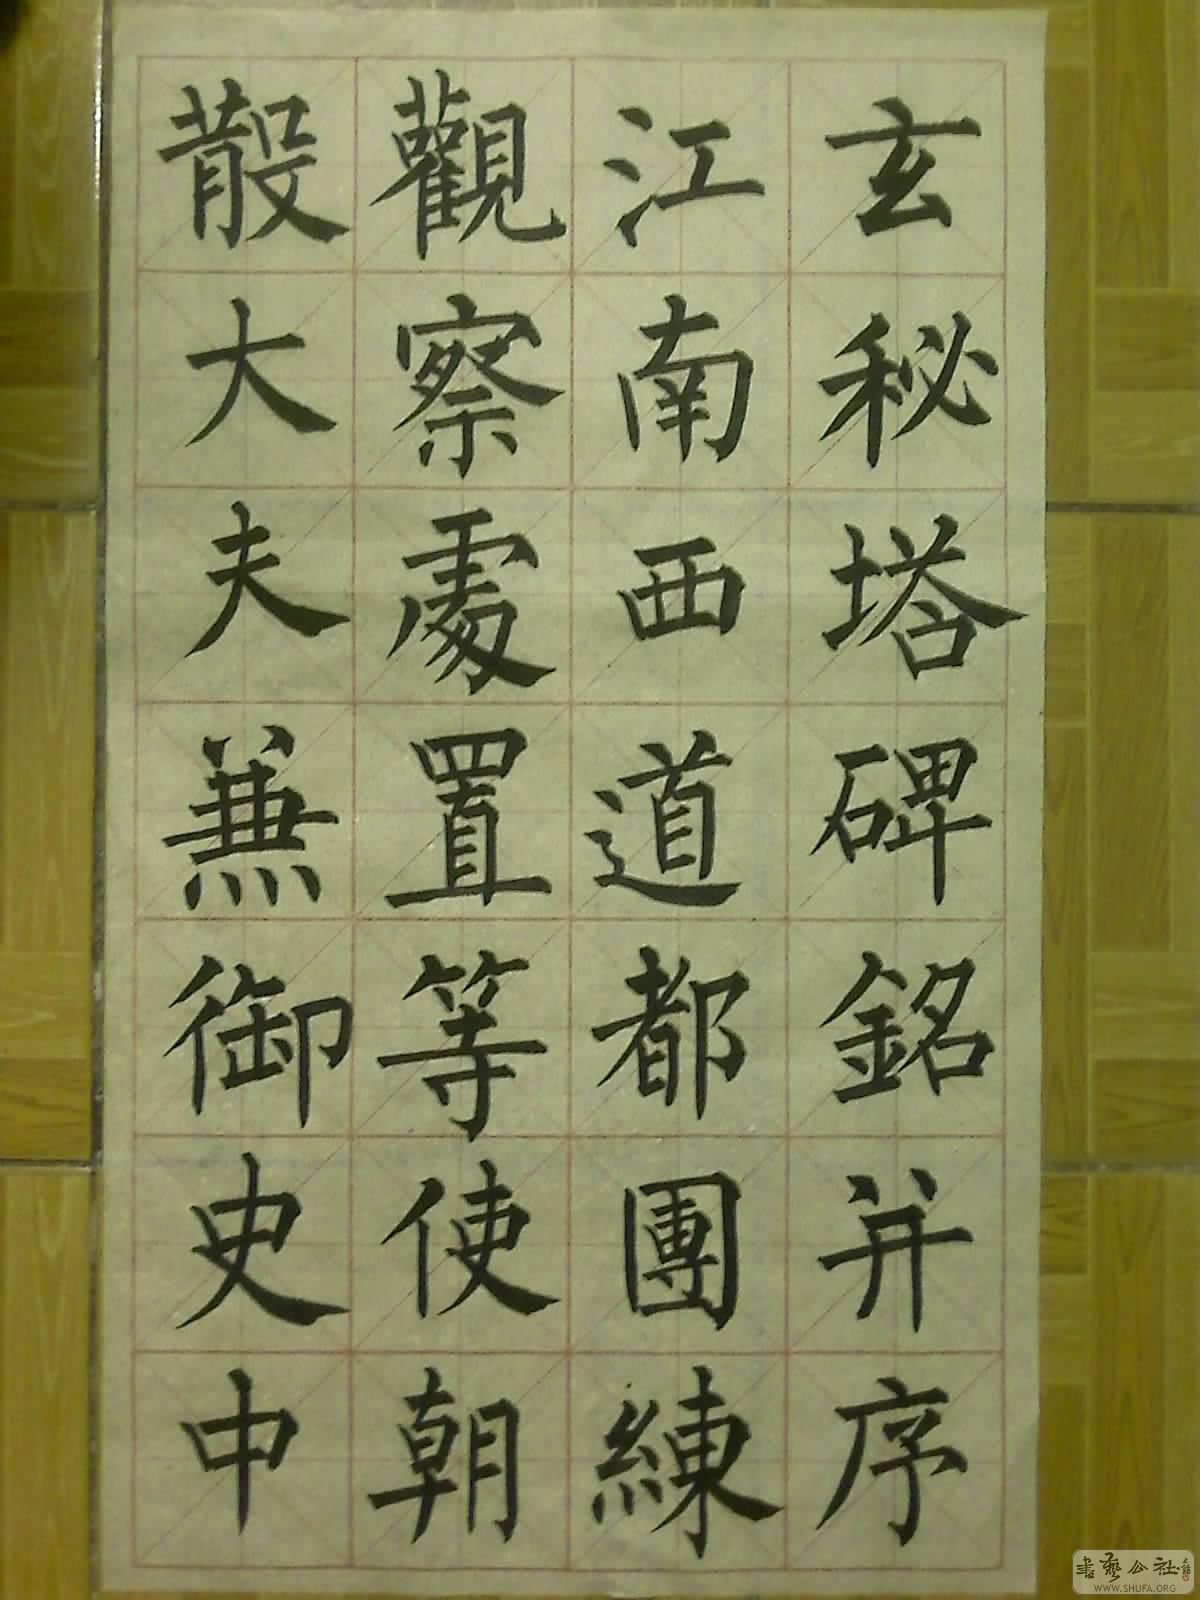 玄秘塔碑銘并序
江南西道都團練
觀察處置等使朝
散大夫兼御史中
書藝公社
WWW.SHUFA.ORG